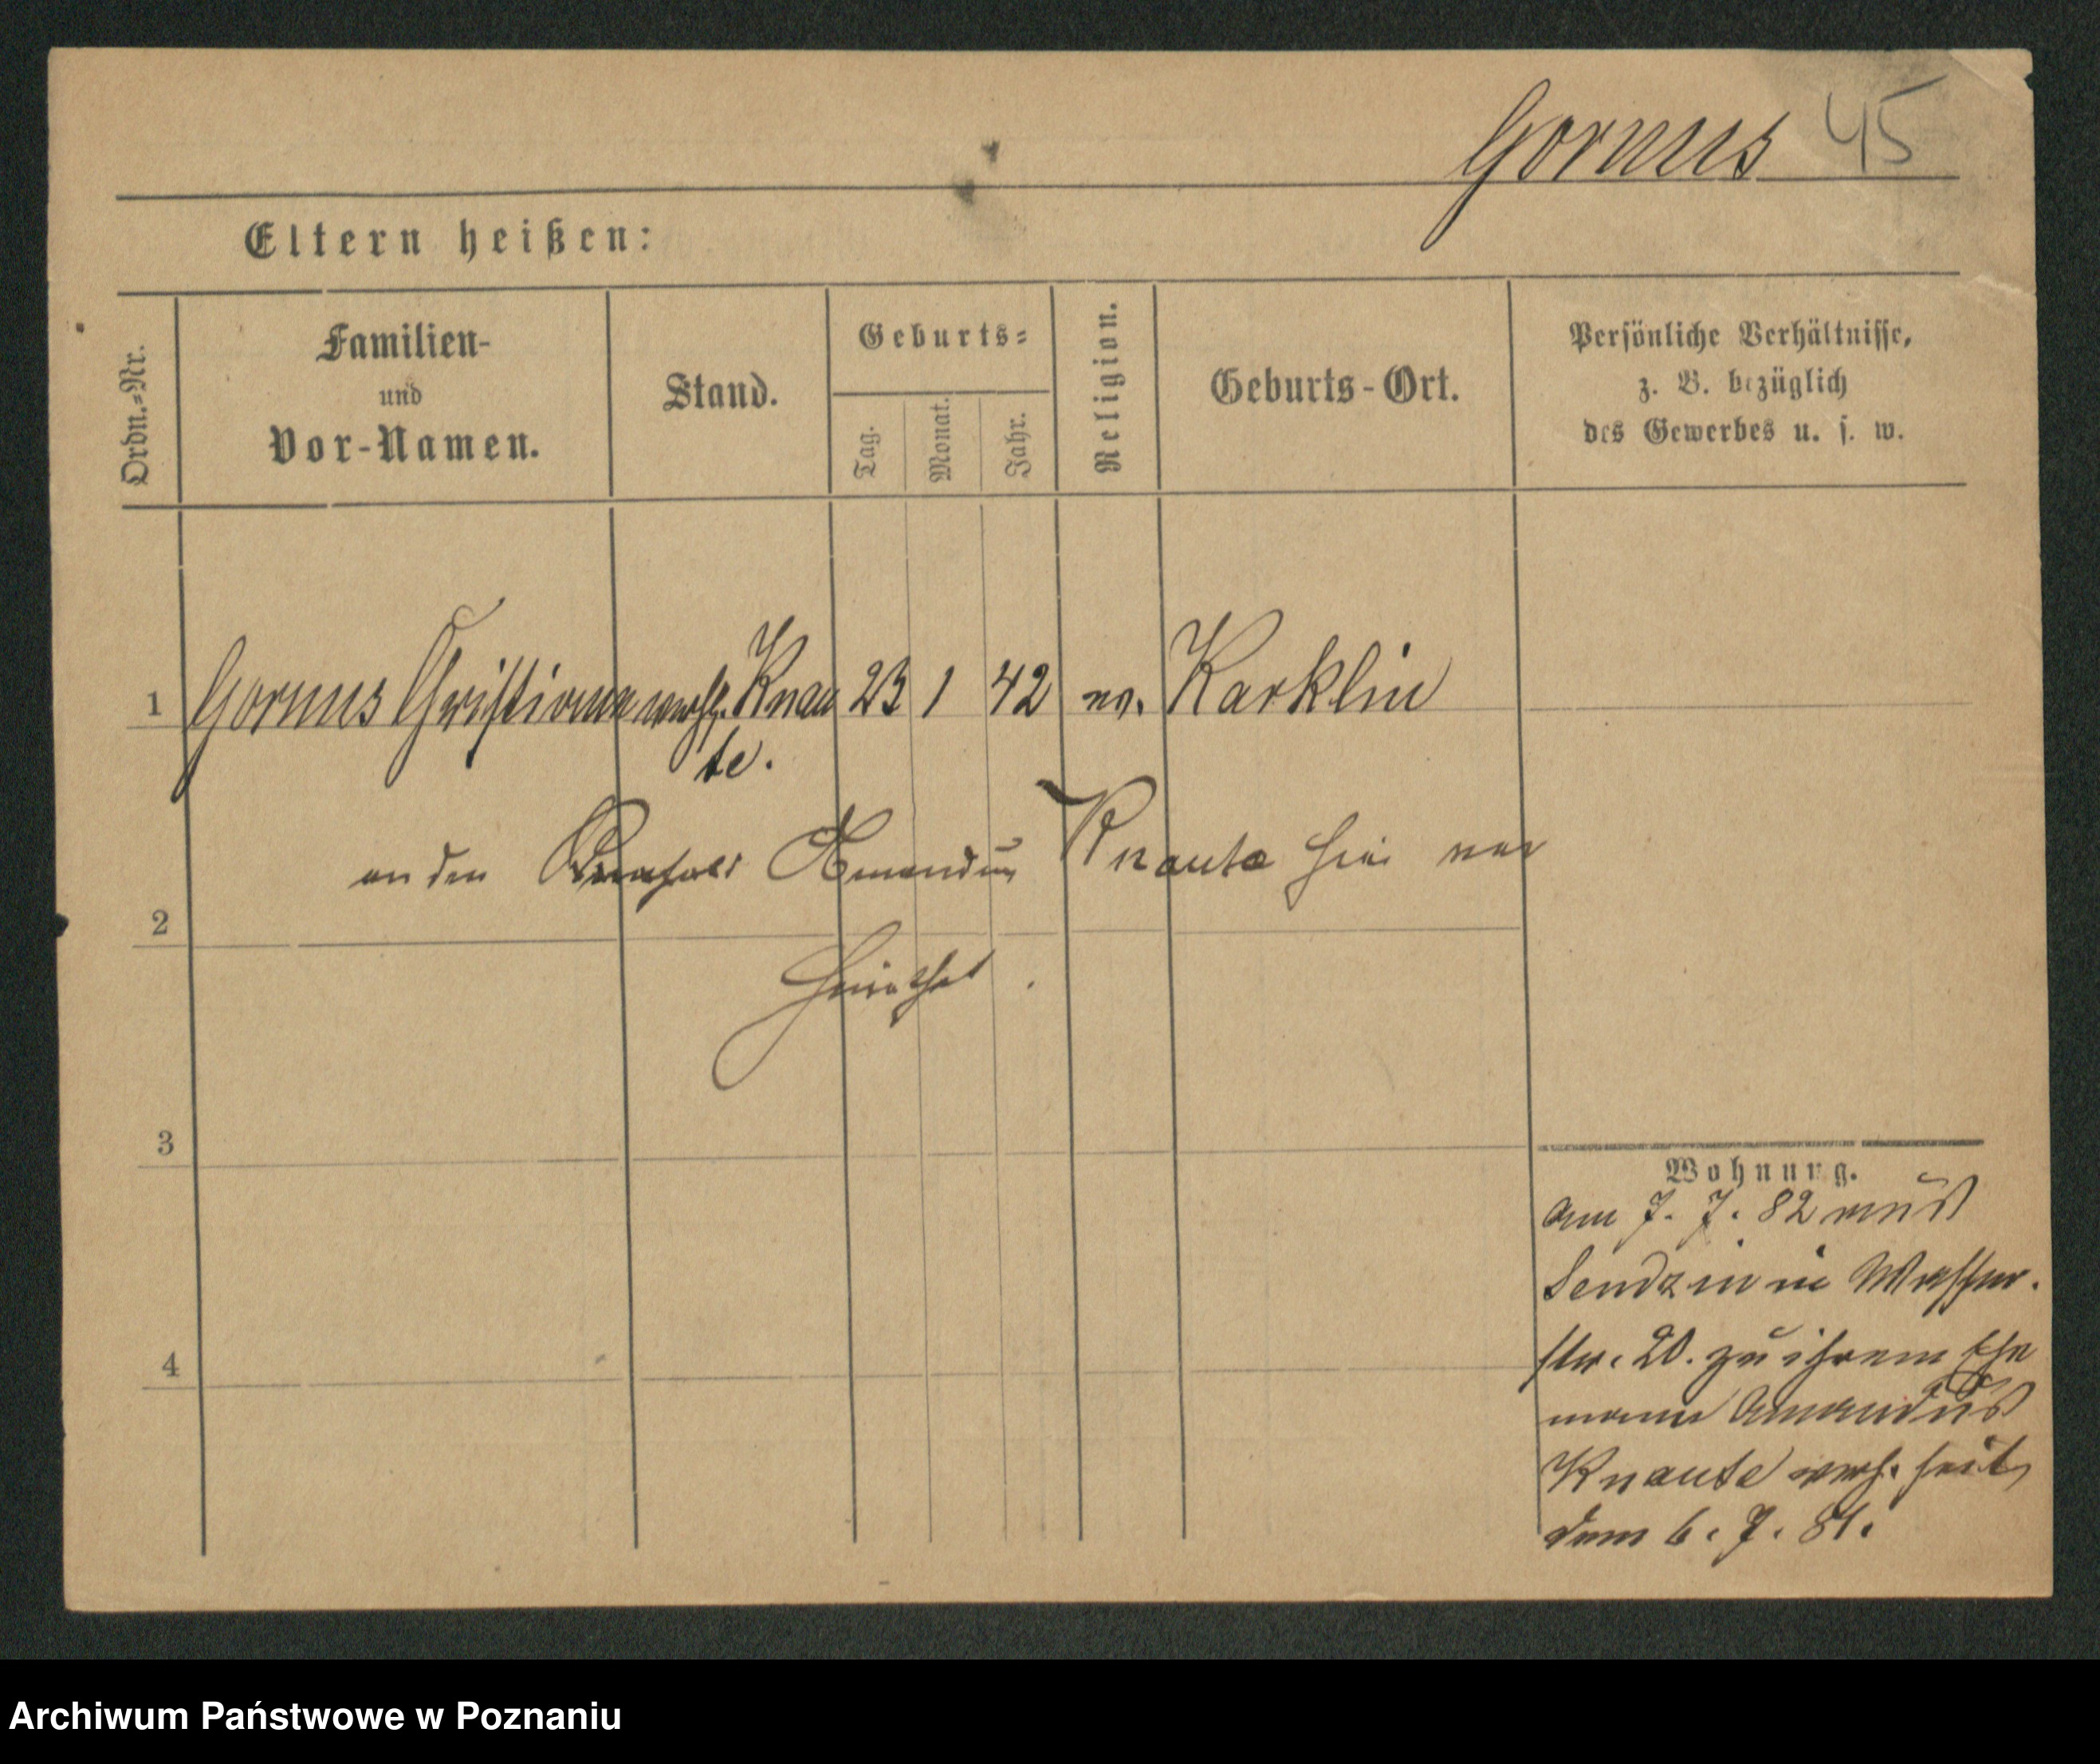 Gornus 45
Eltern heißen:
Ordn.-Nr.
Familien-
und
Vor-Namen.
Stand.
Geburts-
Tag.
Monat.
Jahr.
Religion.
Geburts-Ort.
Persönliche Verhältnisse,
z. B. bezüglich
des Gewerbes u. s. w.
1 Gornus Christiane verh. Knau 23 1 42 ev. Karklin
te.
an den Amandus Knaute hier ver
2
heirathet.
3
Wohnung.
am 7. 7. 82 aus
Sendzin in Wasser-
str. 20. zu ihrem Ehe
4
mann Amandus
Knaute verh. seit
dem 6. 7. 81.
Archiwum Państwowe w Poznaniu